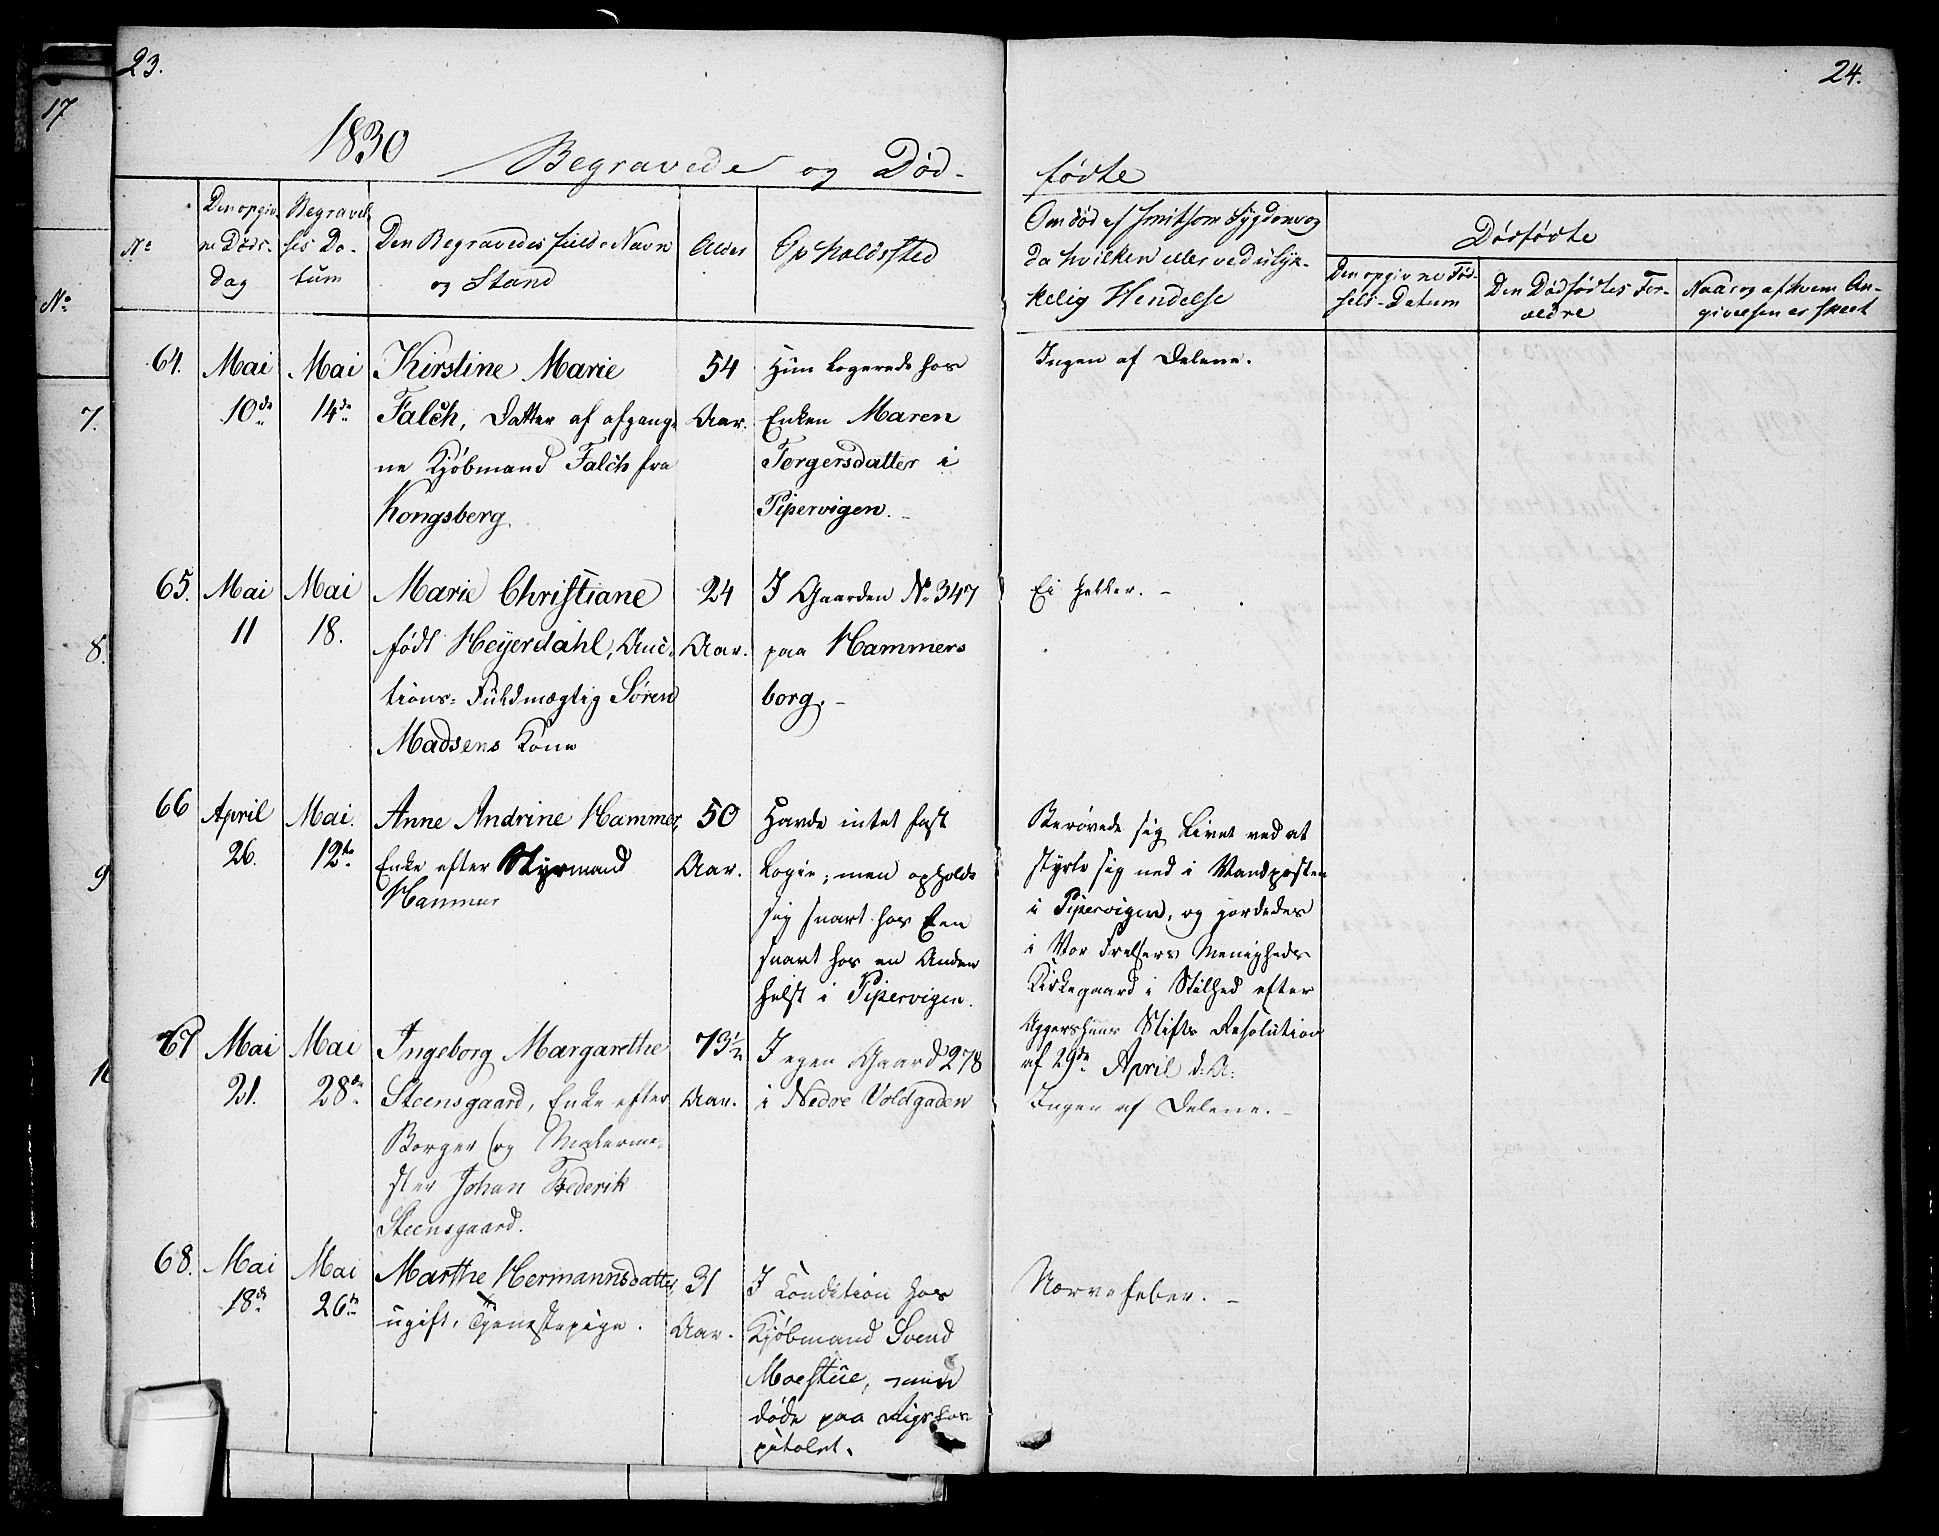 23.
24.
17
1830
Begravede og Død-
fødte
No
Den opgiv-
ne Døds-
dag
Begravel-
ses Da-
tum
Den Begravedes fulde Navn
og Stand
Alder
Opholdssted
Om død af smitsom Sygdom og
da hvilken eller ved ulyk-
kelig Hendelse
Dødfødte
Den opgivne Fød-
sels-Datum
Den Dødfødtes For-
ældre
Naar og af hvem An-
givelsen er skeet
No
7.
8.
9
64.
Mai
10de
Mai
14de
Kirstine Marie
Falch, Datter af afgang-
ne Kjøbmand Falch fra
Kongsberg
54
Aar.
Hun logerede hos
Enken Maren
Torgersdatter i
Pipervigen.
Ingen af Delene.
65.
Mai
11
Mai
18.
Marie Christiane
født Heyerdahl, Auc-
tions-Fuldmægtig Søren
Madsens Kone
24
Aar.
I Gaarden No 347
paa Hammers
borg.
Ei heller.
66
April
26.
Mai
12te
Anne Andrine Hammer,
Enke efter Styrmand
Hammer
50
Aar.
Havde intet fast
Logie; men opholdt
sig snart hos Een
snart hos en Anden
helst i Pipervigen.
Berøvede sig Livet ved at
styrte sig ned i Vandposten
i Pipervigen, og jordedes
i Vor Frelsers Menigheds
Kirkegaard i Stilhed efter
Aggershuus Stifts Resolution
af 29de April d: A:
67
Mai
21.
Mai
28de
Ingeborg Margarethe
Steensgaard, Enke efter
Borger og Malerme-
ster Johan Frederik
Steensgaard.
73 1/2
Aar.
I egen Gaard 278
i Nedre Voldgaden
Ingen af Delene.
68.
Mai
18de
Mai
26te
Marthe Hermannsdatter,
ugift, Tjenestepige.
31
Aar.
I Condition hos
Kjøbmand Svend
Moestue, men
døde paa Rigshos
pitalet.
Nervefeber.